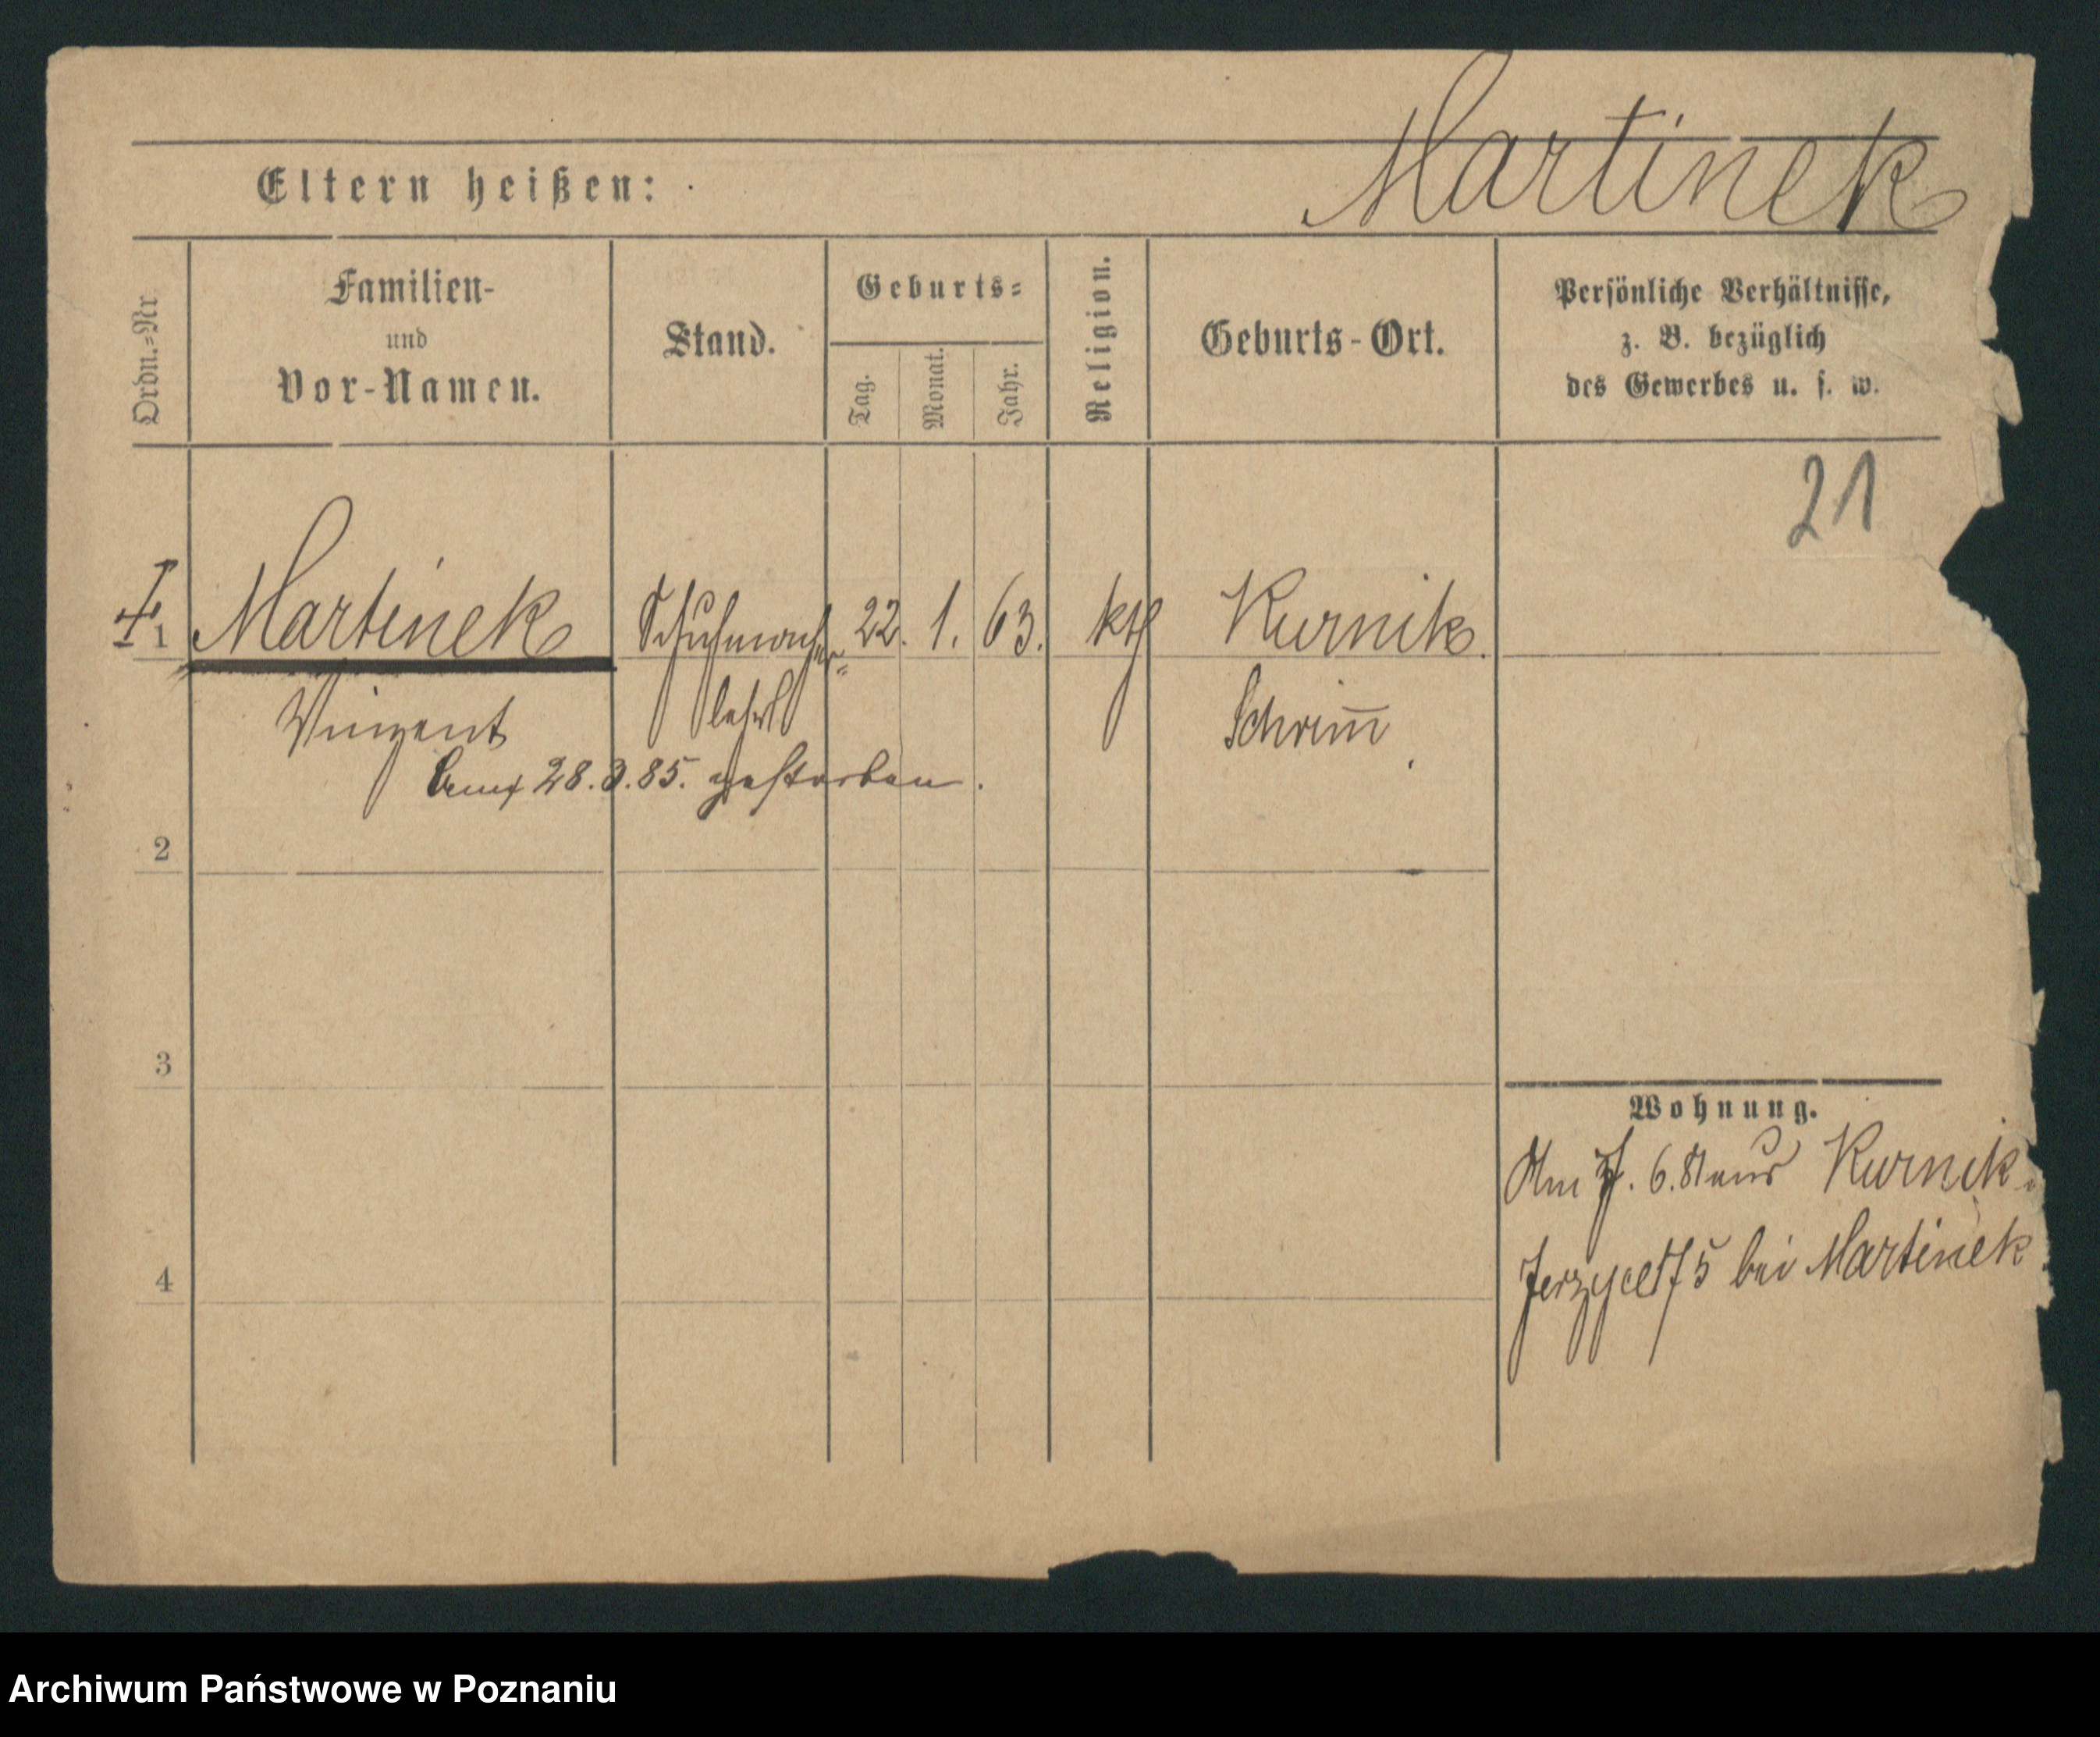 Martinek
Eltern heißen:
Ordn.-Nr.
Familien-
und
Vor-Namen.
Stand.
Geburts-
Tag.
Monat.
Jahr.
Religion.
Geburts-Ort.
Persönliche Verhältnisse,
z. B. bezüglich
des Gewerbes u. s. w.
21
1 Martinek Schuhmacher- 22. 1. 63. kth Kurnik.
Vinzent lehrl Schrim̅
28.3.85. gestorben.
2
3
4
Wohnung.
Am 6.81 aus Kurnik.
bei Martinek
Archiwum Państwowe w Poznaniu